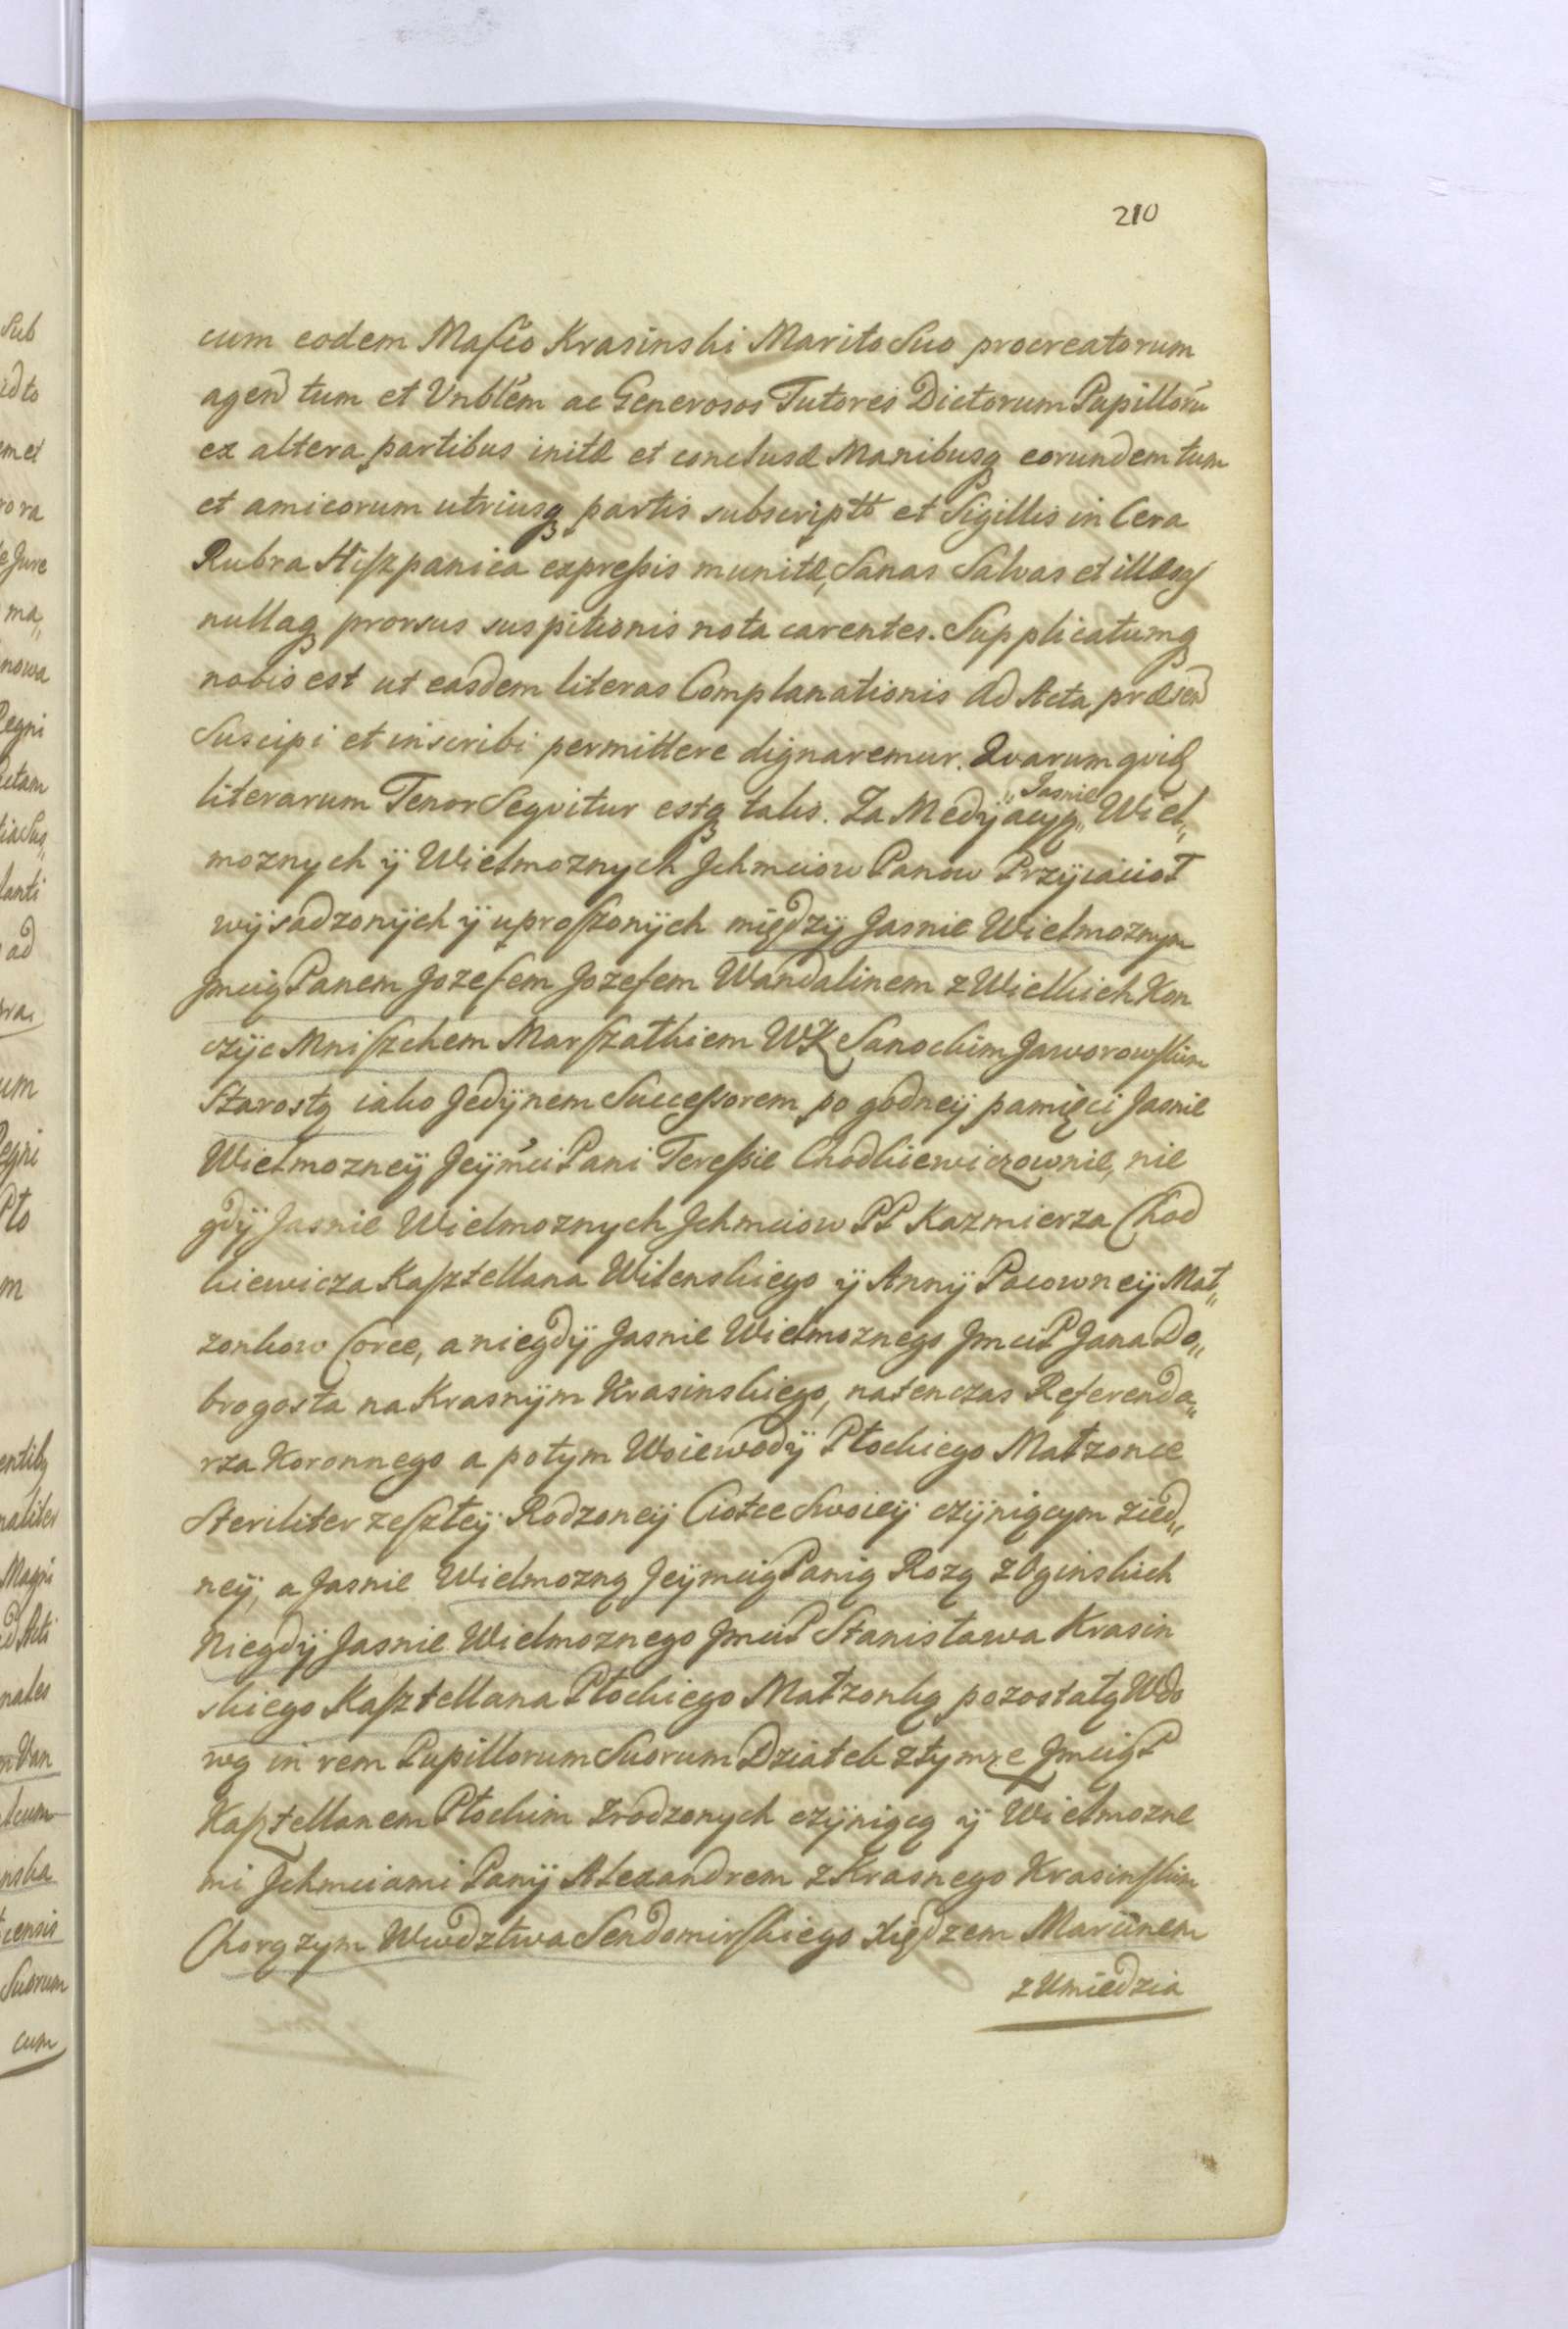 210
cum eodem Mafico Krasinski Marito Suo procreatorum
agen tum et Vnblem ac Generosos Tutores Dictorum Pupilloru
ex altera partibus initæ et conclusæ Manibusq eorundem tum
et amicorum utriusq partis subscriptt et Sigillis in Cera
Rubra Hiszpanica expreßis munitæ, Sanas Salvas et illæsas
nullaq prorsus suspitionis nota carentes. Supplicatumq
nobis est ut easdem literas Complanationis Ad Acta præsen
Suscipi et inscribi permittere dignaremur. Qvarum qvid
literarum Tenor Seqvitur estq talis. Za Medÿacyą „Jasnie„ Wiel„
moznych ÿ Wielmoznych Jchmciow Panow Przÿiacioł
wÿsadzonÿch ÿ uproszonÿch międzÿ Jasnie Wielmoznym
Jmcią Panem Jozefem Jozefem Wandalinem z Wielkich Kon
czÿc Mniszchem Marszałkiem WK Sanockim Jaworowskim
Starostą iako Jedÿnem Successorem po godneÿ pamięci Jasnie
Wielmozneÿ Jeÿmci Pani Tereßie Chodkiewiczownie, nie
gdÿ Jasnie Wielmoznych Jchmciow PP Kazmierza Chod
kiewicza Kasztellana Wilenskiego ÿ Annÿ Pacowneÿ Mał„
zonkow Corce, a niegdÿ Jasnie Wielmoznego Jmci P Jana Do„
brogosta na Krasnÿm Krasinskiego, natenczas Referenda„
rza Koronnego a potym Woiewodÿ Płockiego Małzonce
Steriliter zeszłeÿ Rodzoneÿ Ciotce Swoieÿ czÿniącym zied„
neÿ, a Jasnie Wielmozną Jeÿmcią Panią Rozą z Oginskich
Niegdÿ Jasnie Wielmoznego Jmci P Stanisława Krasin
skiego Kasztellana Płockiego Małzonką pozostałą Wdo
wą in rem Pupillorum Suorum Dziatek z tymze Jmcią P
Kasztellanem Płockim zrodzonych czÿniącą ÿ Wielmozne
mi Jchmciami Panÿ Alexandrem z Krasnego Krasinskim
Chorązym Wiwdztwa Sendomirskiego Xiędzem Marcinem
z Umiedzia